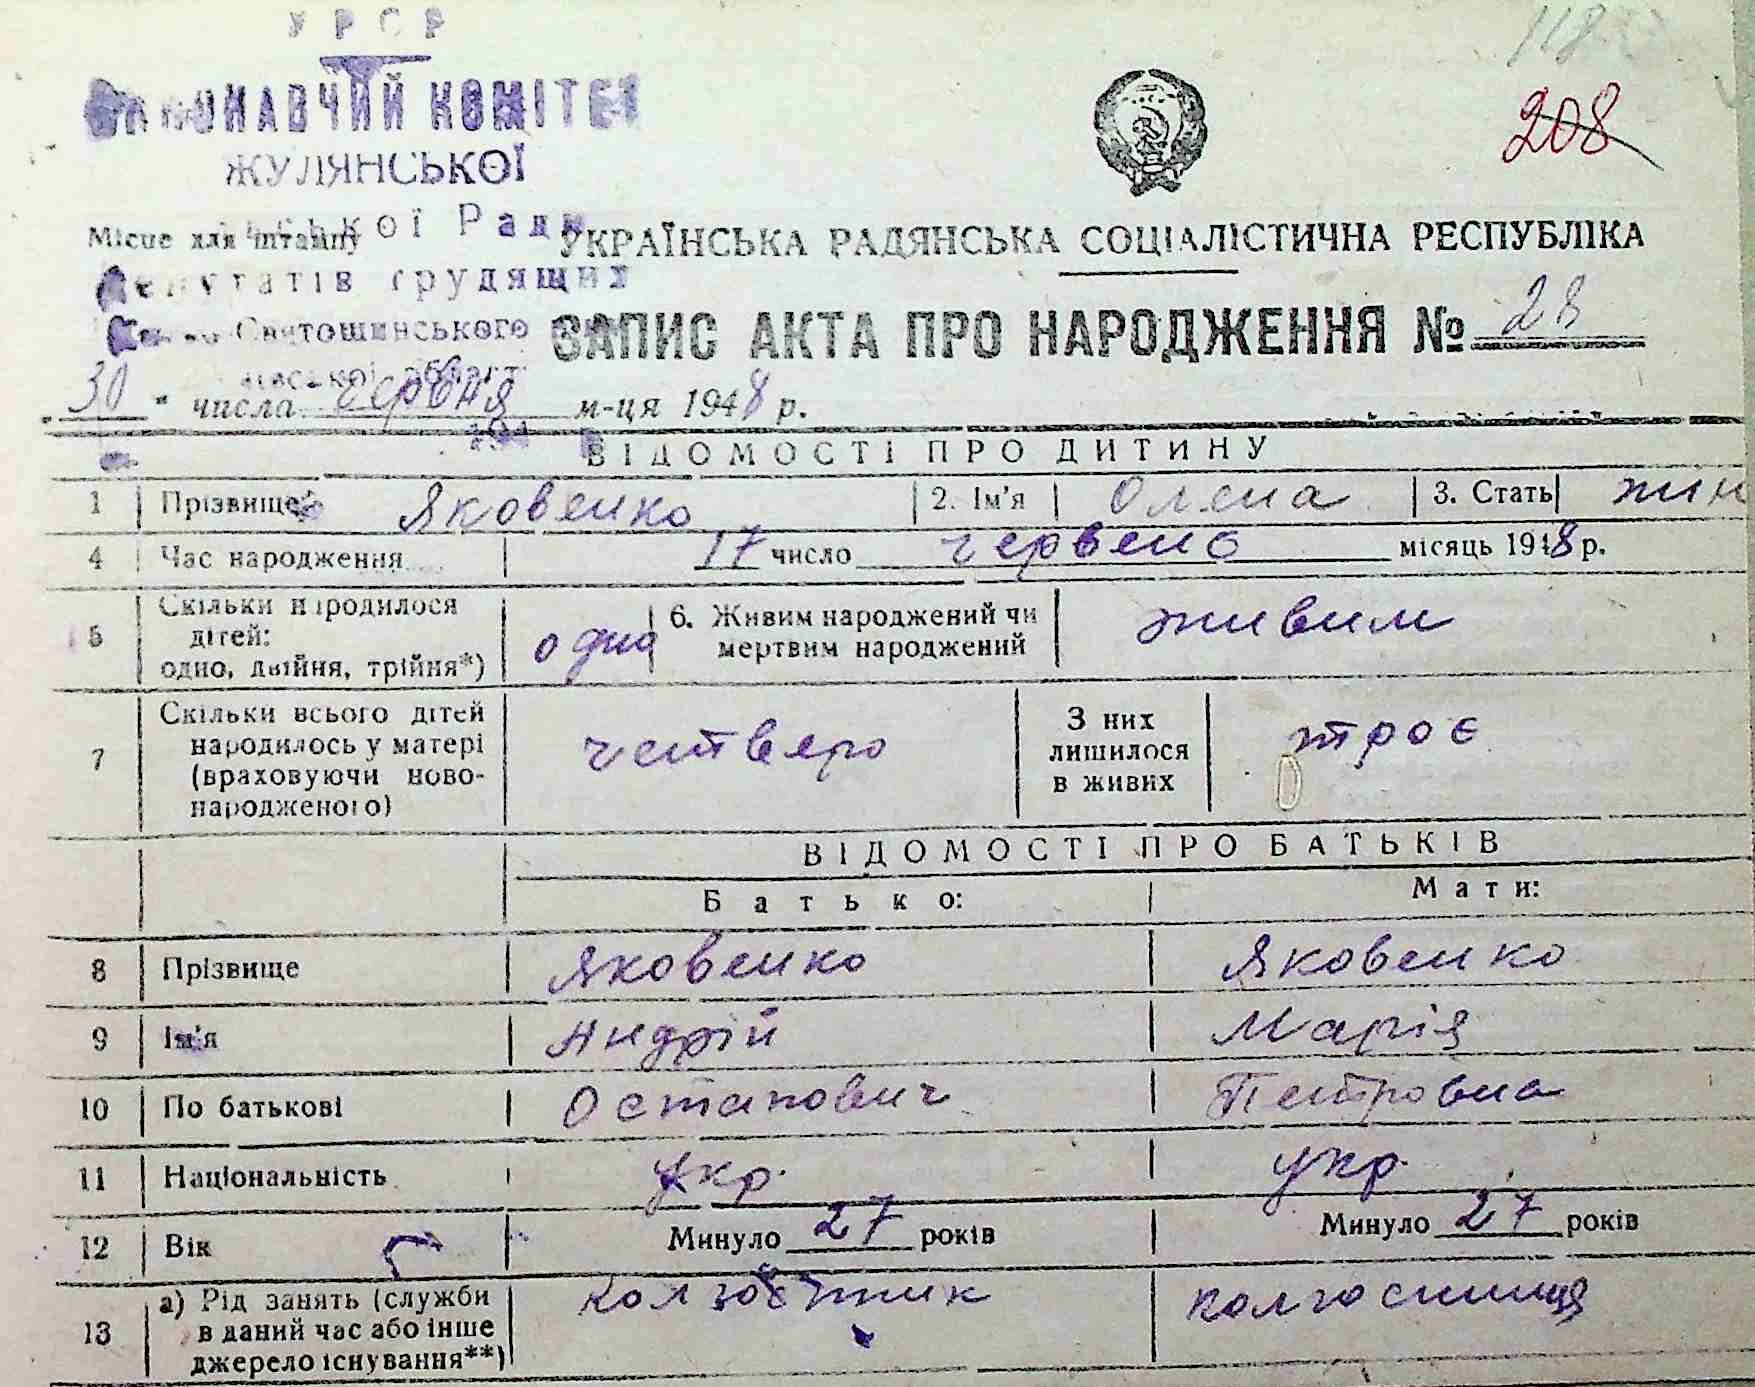 УРСР
ВИКОНАВЧИЙ КОМІТЕТ
ЖУЛЯНСЬКОЇ
Ради
Місце для штампу
УКРАЇНСЬКА РАДЯНСЬКА СОЦІАЛІСТИЧНА РЕСПУБЛІКА
Депутатів трудящих
Святошинського
ЗАПИС АКТА ПРО НАРОДЖЕННЯ № 28
208
"30" числа червня м-ця 1948 р.
194
ВІДОМОСТІ ПРО ДИТИНУ
1 Прізвище Яковенко 2. Ім'я Олена 3. Стать жін
4 Час народження 17 число червень місяць 1948 р.
5 Скільки народилося дітей: одно, двійня, трійня*) одна 6. Живим народжений чи мертвим народжений живим
7 Скільки всього дітей народилось у матері (враховуючи ново-народженого) четверо З них лишилося в живих троє
ВІДОМОСТІ ПРО БАТЬКІВ
Батько: Мати:
8 Прізвище Яковенко Яковенко
9 Ім'я Андрій Марія
10 По батькові Остапович Петровна
11 Національність укр. укр.
12 Вік Минуло 27 років Минуло 27 років
13 а) Рід занять (служби в даний час або інше джерело існування**) колгоспник колгоспниця